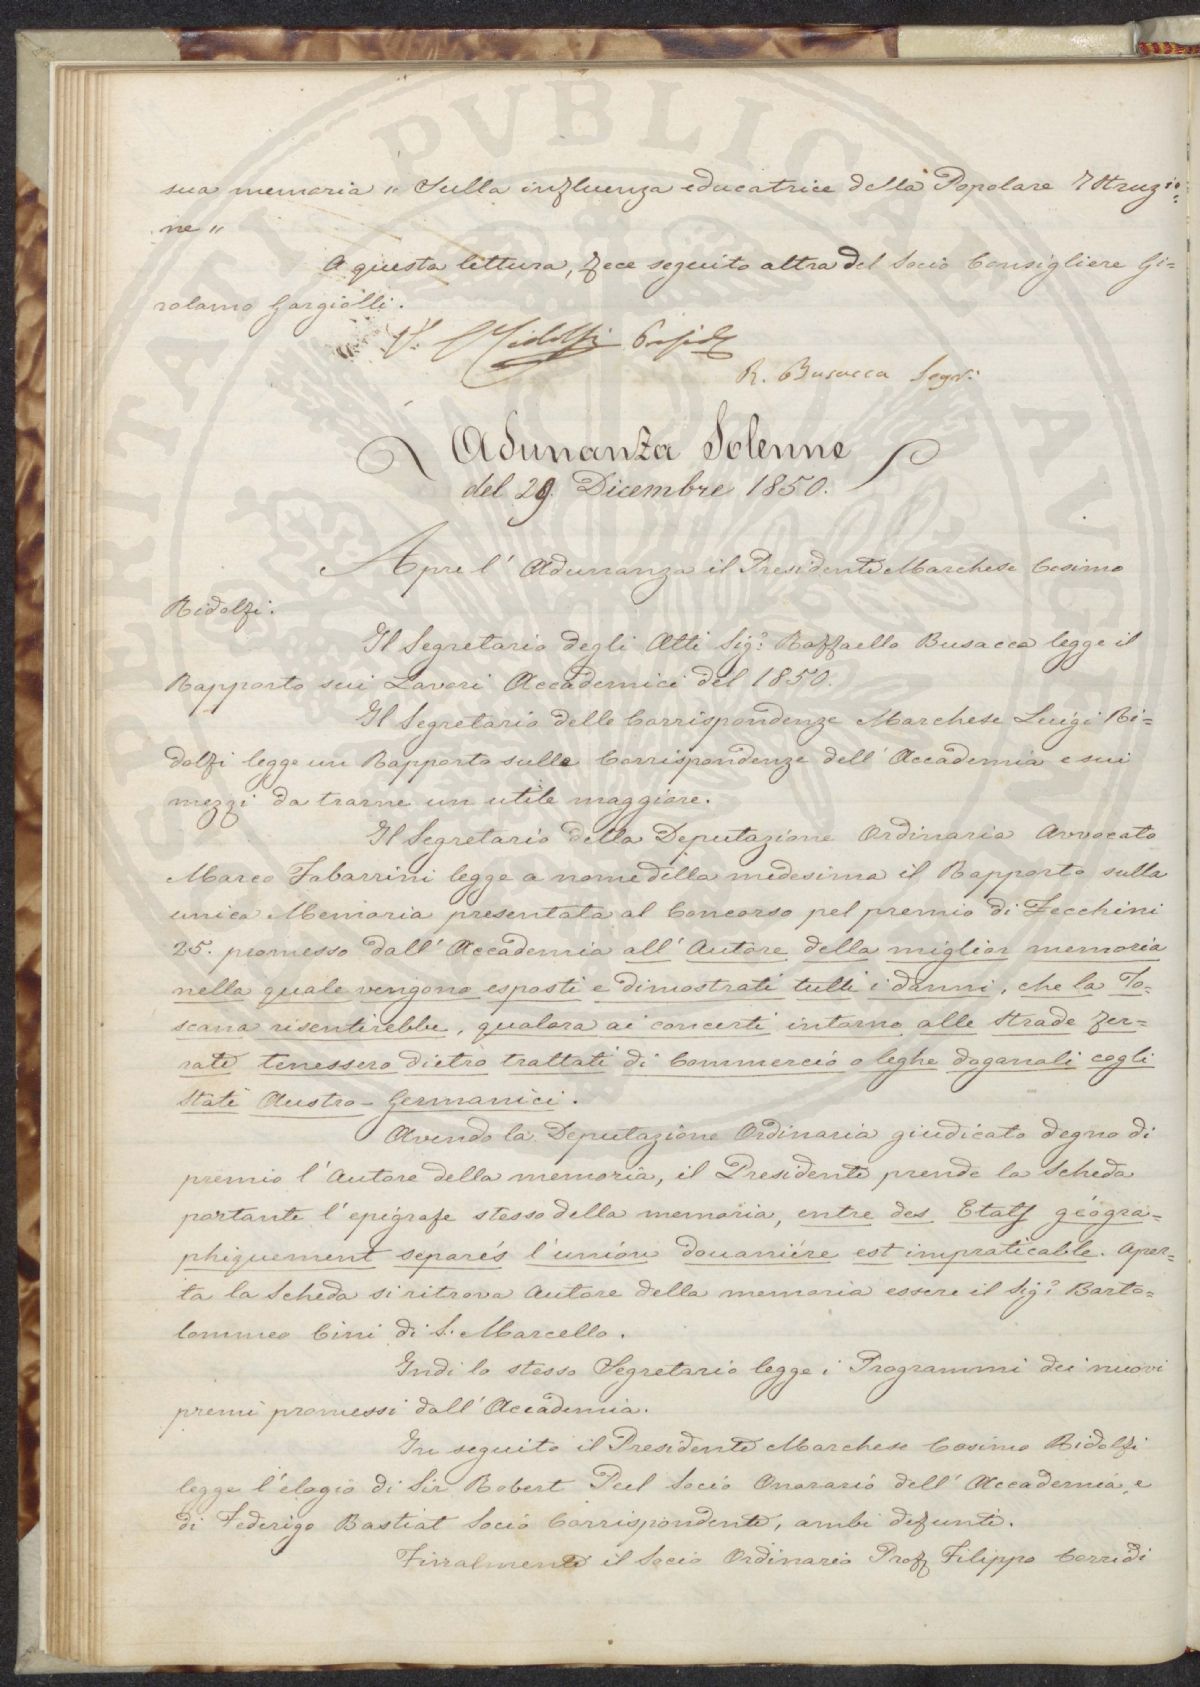 sua memoria „ Sulla influenza educatrice della Popolare Istruzio=
ne „
A questa lettura, fece seguito altra del Socio Consigliere Gi=
rolamo Gargiolli.
V. C Ridolfi Presid
R. Busacca Segr:
Adunanza Solenne
del 29. Dicembre 1850.
Apre l' Adunanza il Presidente Marchese Cosimo
Ridolfi.
Il Segretario degli Atti Sig: Raffaello Busacca legge il
Rapporto sui Lavori Accademici del 1850.
Il Segretario delle Corrispondenze Marchese Luigi Ri=
dolfi legge un Rapporto sulle Corrispondenze dell' Accademia e sui
mezzi da trarne un utile maggiore.
Il Segretario della Deputazione Ordinaria Avvocato
Marco Tabarrini legge a nome della medesima il Rapporto sulla
unica Memoria presentata al Concorso pel premio di Zecchini
25. promesso dall' Accademia all' Autore della miglior memoria
nella quale vengono esposti e dimostrati tutti i danni, che la To=
scana risentirebbe, qualora ai concerti intorno alle Strade fer=
rate tenessero dietro trattati di Commercio o leghe doganali cogli
Stati Austro-Germanici.
Avendo la Deputazione Ordinaria giudicato degno di
premio l' Autore della memoria, il Presidente prende la Scheda
portante l' epigrafe stessa della memoria, entre des Etats géogra=
phiquement separés l' unión douaniére est impraticable. Aper=
ta la Scheda si ritrova Autore della memoria essere il Sig: Barto=
lommeo Cini di S. Marcello.
Indi lo stesso Segretario legge i Programmi dei nuovi
premi promessi dall' Accademia.
In seguito il Presidente Marchese Cosimo Ridolfi
legge l' elogio di Sir Robert Peel Socio Onorario dell' Accademia, e
di Federigo Bastiat Socio Corrispondente, ambi defunti.
Finalmente il Socio Ordinario Prof Filippo Corridi
PUBLICAE